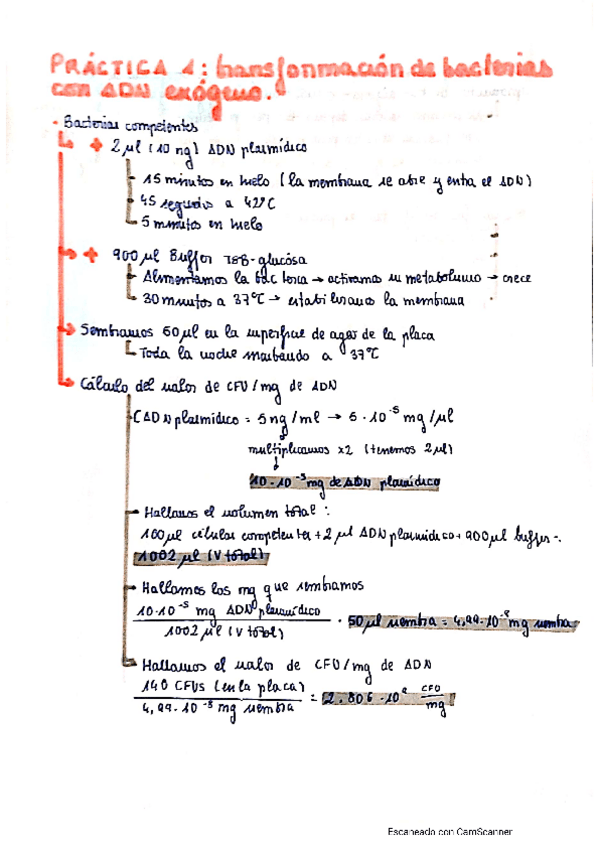 PRÁCTICA 1: transformación de bacterias
con ADN exógeno.
- Bacterias competentes
+ 2 µl (10 ng) ADN plasmídico
15 minutos en hielo (la membrana se abre y entra el ADN)
45 segundos a 42ºC
5 minutos en hielo
+ 900 µl Buffer TSB-glucosa
Alimentamos la bacteria → activamos su metabolismo → crece
30 minutos a 37ºC → estabilizamos la membrana
Sembramos 50 µl en la superficie de agar de la placa
Toda la noche incubando a 37ºC
Cálculo del valor de CFU/mg de ADN
[ADN plasmídico = 5 ng/ml → 5 · 10⁻⁵ mg/µl
multiplicamos x2 (tenemos 2 µl)
10 · 10⁻⁵ mg de ADN plasmídico
Hallamos el volumen total:
100 µl células competentes + 2 µl ADN plasmídico + 900 µl buffer =
1002 µl (V total)
Hallamos los mg que sembramos
10·10⁻⁵ mg ADN plasmídico
1002 µl (V total)
· 50 µl siembra = 4,99·10⁻⁸ mg siembra
Hallamos el valor de CFU/mg de ADN
140 CFUs (en la placa)
4,99·10⁻⁸ mg siembra
= 2.806·10⁹ CFU
mg
Escaneado con CamScanner